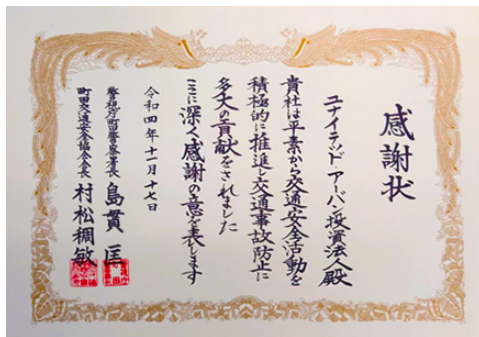 感謝状
ユナイテッド・アーバン投資法人殿
貴社は平素から交通安全活動を
積極的に推進し交通事故防止に
多大の貢献をされました
ここに深く感謝の意を表します
令和四年十一月十七日
警視庁町田警察署長 島貫匡
町田交通安全協会会長 村松稠敏